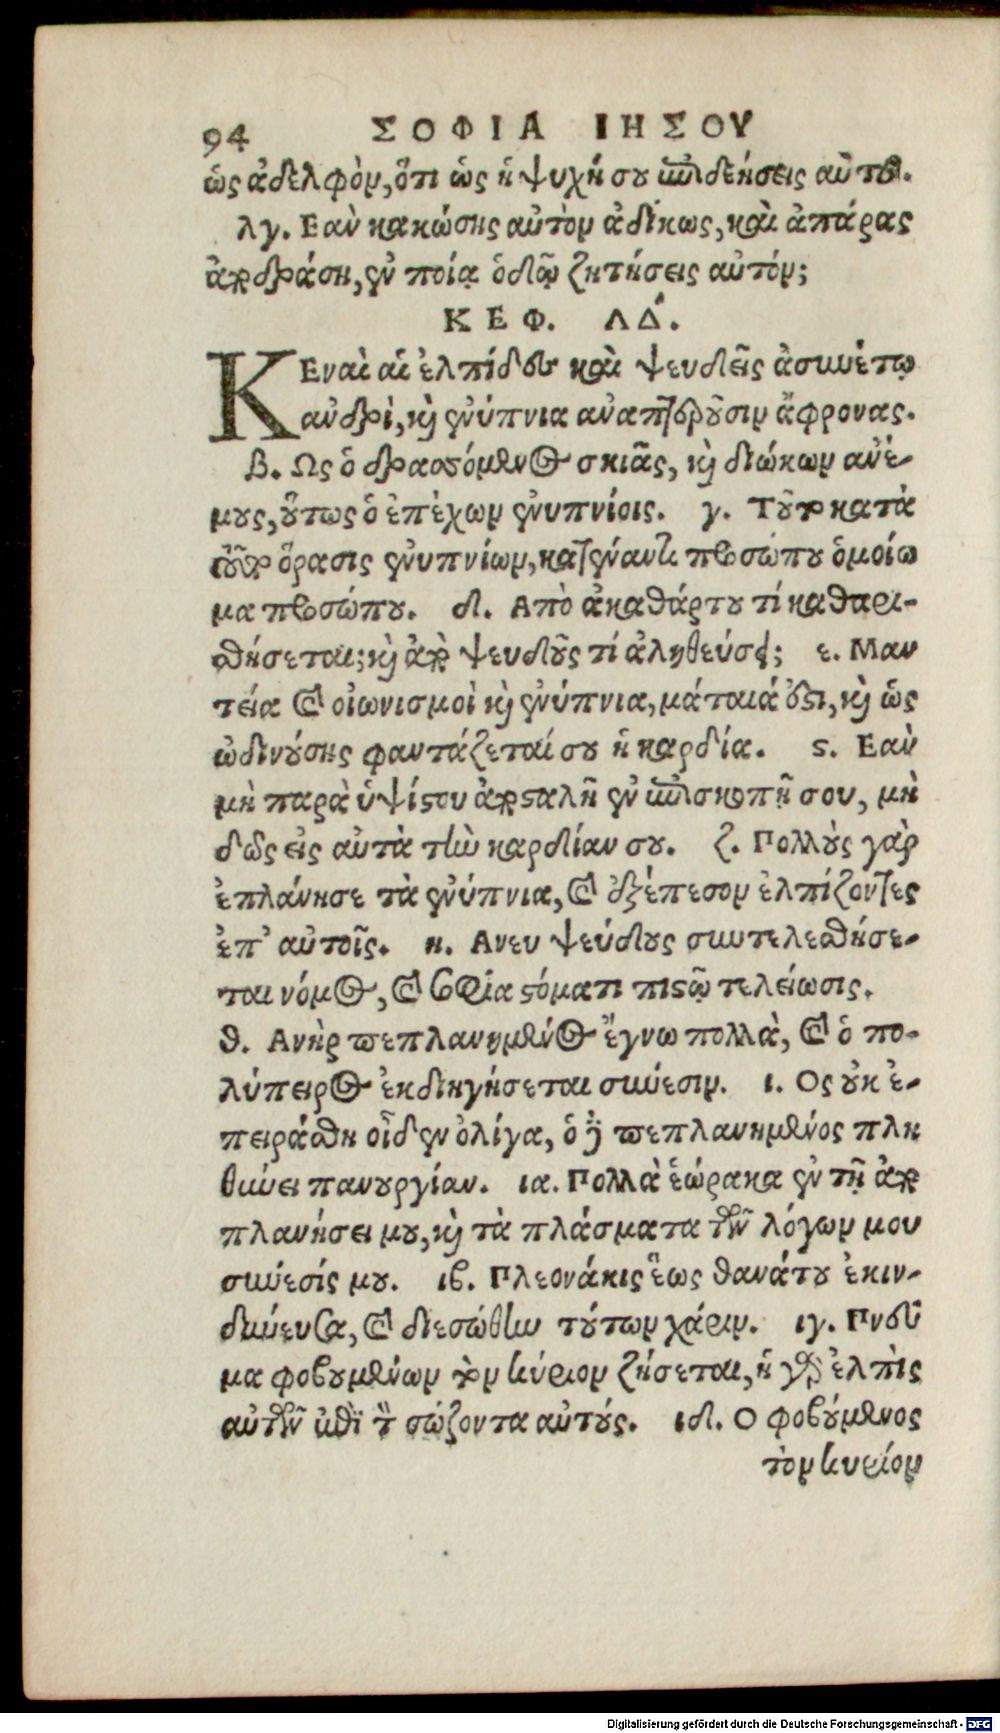 94 ΣΟΦΙΑ ΙΗΣΟΥ
ὡς ἀδελφὸν, ὅτι ὡς ἡ ψυχή σου ἐπιδεήσεις αὐτοῦ.
λγ. Εὰν κακώσῃς αὐτὸν ἀδίκως, καὶ ἀπάρας
ἀποδράσῃ, ἐν ποίᾳ ὁδῷ ζητήσεις αὐτόν;
ΚΕΦ. ΛΔ΄.
ΚΕναὶ αἱ ἐλπίδες καὶ ψευδεῖς ἀσυνέτῳ
ανδρὶ, καὶ ἐνύπνια αναπτεροῦσιν ἄφρονας.
β. Ως ὁ δρασσόμενος σκιᾶς, καὶ διώκων ανέ-
μους, οὕτως ὁ ἐπέχων ἐνυπνίοις. γ. Τοῦτο κατὰ
τούτου ὅρασις ἐνυπνίων, κατέναντι προσώπου ὁμοίω
μα προσώπου. δ. Απὸ ἀκαθάρτου τί καθαρι-
σθήσεται; καὶ ἀπὸ ψευδοῦς τί ἀληθεύσει; ε. Μαν
τεία καὶ οἰωνισμοὶ καὶ ἐνύπνια, μάταιά ἐστι, καὶ ὡς
ὠδινούσης φαντάζεταί σου ἡ καρδία. ϛ. Εὰν
μὴ παρὰ ὑψίστου ἀποσταλῇ ἐν ἐπισκοπῇ σου, μὴ
δῷς εἰς αὐτὰ τὴν καρδίαν σου. ζ. Πολλοὺς γὰρ
ἐπλάνησε τὰ ἐνύπνια, καὶ ἐξέπεσον ἐλπίζοντες
ἐπ᾽ αὐτοῖς. η. Ανευ ψεύδους συντελεσθήσε-
ται νόμος, καὶ σοφία στόματι πιστῷ τελείωσις.
θ. Ανὴρ πεπλανημένος ἔγνω πολλὰ, καὶ ὁ πο-
λύπειρος ἐκδιηγήσεται σύνεσιν. ι. Ος οὐκ ἐ-
πειράθη οἶδεν ὀλίγα, ὁ δὲ πεπλανημένος πλη
θύνει πανουργίαν. ια. Πολλὰ ἑώρακα ἐν τῇ ἀπο
πλανήσει μου, καὶ τὰ πλάσματα τῶν λόγων μου
σύνεσίς μου. ιβ. Πλεονάκις ἕως θανάτου ἐκιν-
δύνευσα, καὶ διεσώθην τούτων χάριν. ιγ. Πνεῦ
μα φοβουμένων τὸν κύριον ζήσεται, ἡ γὰρ ἐλπὶς
αὐτῶν ἐπὶ τὸν σώζοντα αὐτούς. ιδ. Ο φοβούμενος
τὸν κυρίον
Digitalisierung gefördert durch die Deutsche Forschungsgemeinschaft - DFG